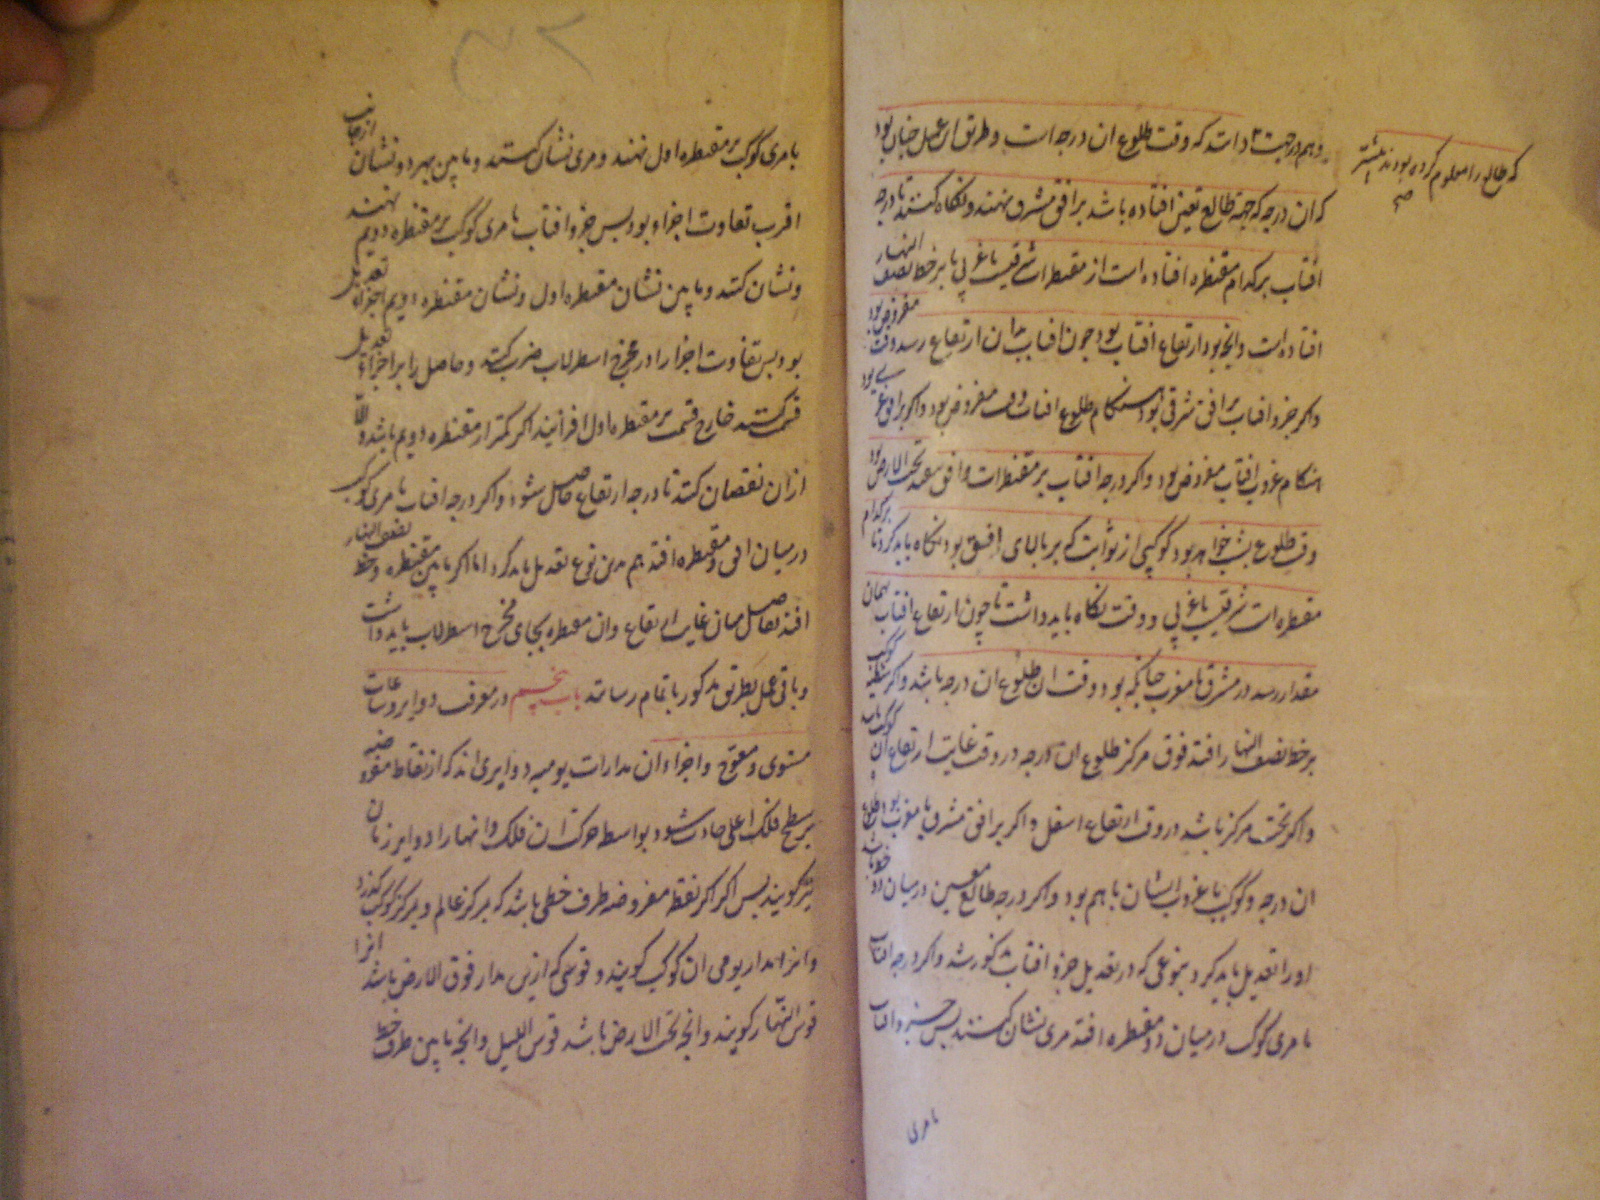 که طالع را معلوم کرده بودند بیشتر
صح
وهم درجت دانسته که وقت طلوع ان درجه است و طریق ان عمل چنان بود
که ان درجه که جهة طالع تعیین افتاده باشد بر افق مشرق نهند و نکاه کنند تا درجه
افتاب بر کدام مقنطره افتاده است از مقنطرات شرقیت یا غربی یا بر خط نصف النهار
افتاده است وانچه بود ارتفاع افتاب بود چون افتاب بدان ارتفاع رسد وقت مفروض بود
واکر جزو افتاب بر افق شرقی بود هنکام طلوع افتاب وقت مفروض بود واکر بر افق غربی بود
هنکام غروب افتاب مفروض بود واکر درجه افتاب بر مقنطرات وافق نیفتد تحت الارض بود
وقت طلوع بشب خواهد بود کوکبی از ثوابت که بر بالای افق بود نکاه باید کرد تا بر کدام
مقنطره است شرقیت یا غربی و وقت نکاه باید داشت تا چون ارتفاع افتاب بهمان
مقدار رسد در مشرق یا مغرب چنانکه بود وقت ان طلوع ان درجه باشد واکر شظیه کوکب
بر خط نصف النهار افتد فوق مرکز طلوع ان درجه در وقت غایت ارتفاع ان کوکب باشد
واکر تحت مرکز باشد در وقت ارتفاع اسفل واکر بر افق مشرق یا مغرب بود طلوع
ان درجه و کوکب یا غروب ایشان با هم بود واکر درجه طالع معین در میان دو خط باشد
او را تعدیل باید کرد بنوعی که در تعدیل جزو افتاب مذکور شد واکر درجه افتاب
یا مری کوکب در میان دو مقنطره افتد مری نشان کنند پس جزو افتاب
یا مری
یا مری کوکب بر مقنطره اول نهند و مری نشان کنند و مابین بهر دو نشان از جانب
اقرب تفاوت اجزاء بود پس جزو افتاب یا مری کوکب بر مقنطره دویم نهند
و نشان کنند و مابین نشان مقنطره اول و نشان مقنطره دویم اجزاء تعدیل
بود پس تفاوت اجزا را در مخرج اسطرلاب ضرب کنند و حاصل را بر اجزاء تعدیل
قسمت کنند خارج قسمت بر مقنطره اول افزایند اکر کمتر از مقنطره دویم باشد والا
ازان نقصان کنند تا درجه ارتفاع حاصل شود واکر درجه افتاب یا مری کوکب
در میان افق و مقنطره افتد هم بدین نوع تعدیل باید کرد اما اکر مابین مقنطره و خط نصف النهار
افتد تفاضل میان غایت ارتفاع وان مقنطره بجای مخرج اسطرلاب باید داشت
و باقی عمل بطریق مذکور باتمام رسانند باب پنجم در معرفت دوایر و ساعات
مستوی و معوج و اجزاء ان مدارات یومیه دوایری اند که از نقاط مفروضه
بر سطح فلک اعلی حادث شود بواسطه حرکت ان فلک و انها را دوایر زمان
نیز کویند پس اکر نقطه مفروضه طرف خطی باشد که بمرکز عالم و بمرکز کوکب کذرد
وانرا مدار یومی ان کوکب کویند و قوسی که ازین مدار فوق الارض باشد انرا
قوس النهار کویند وانچه تحت الارض باشد قوس اللیل وانچه مابین طرف خط